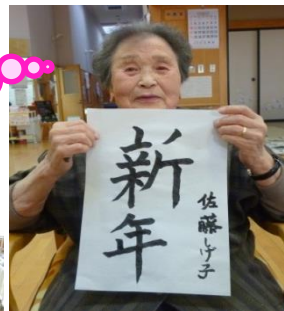 新年
佐藤しげ子